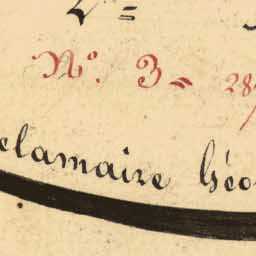 N.º 3 = 28
elamaire Géo